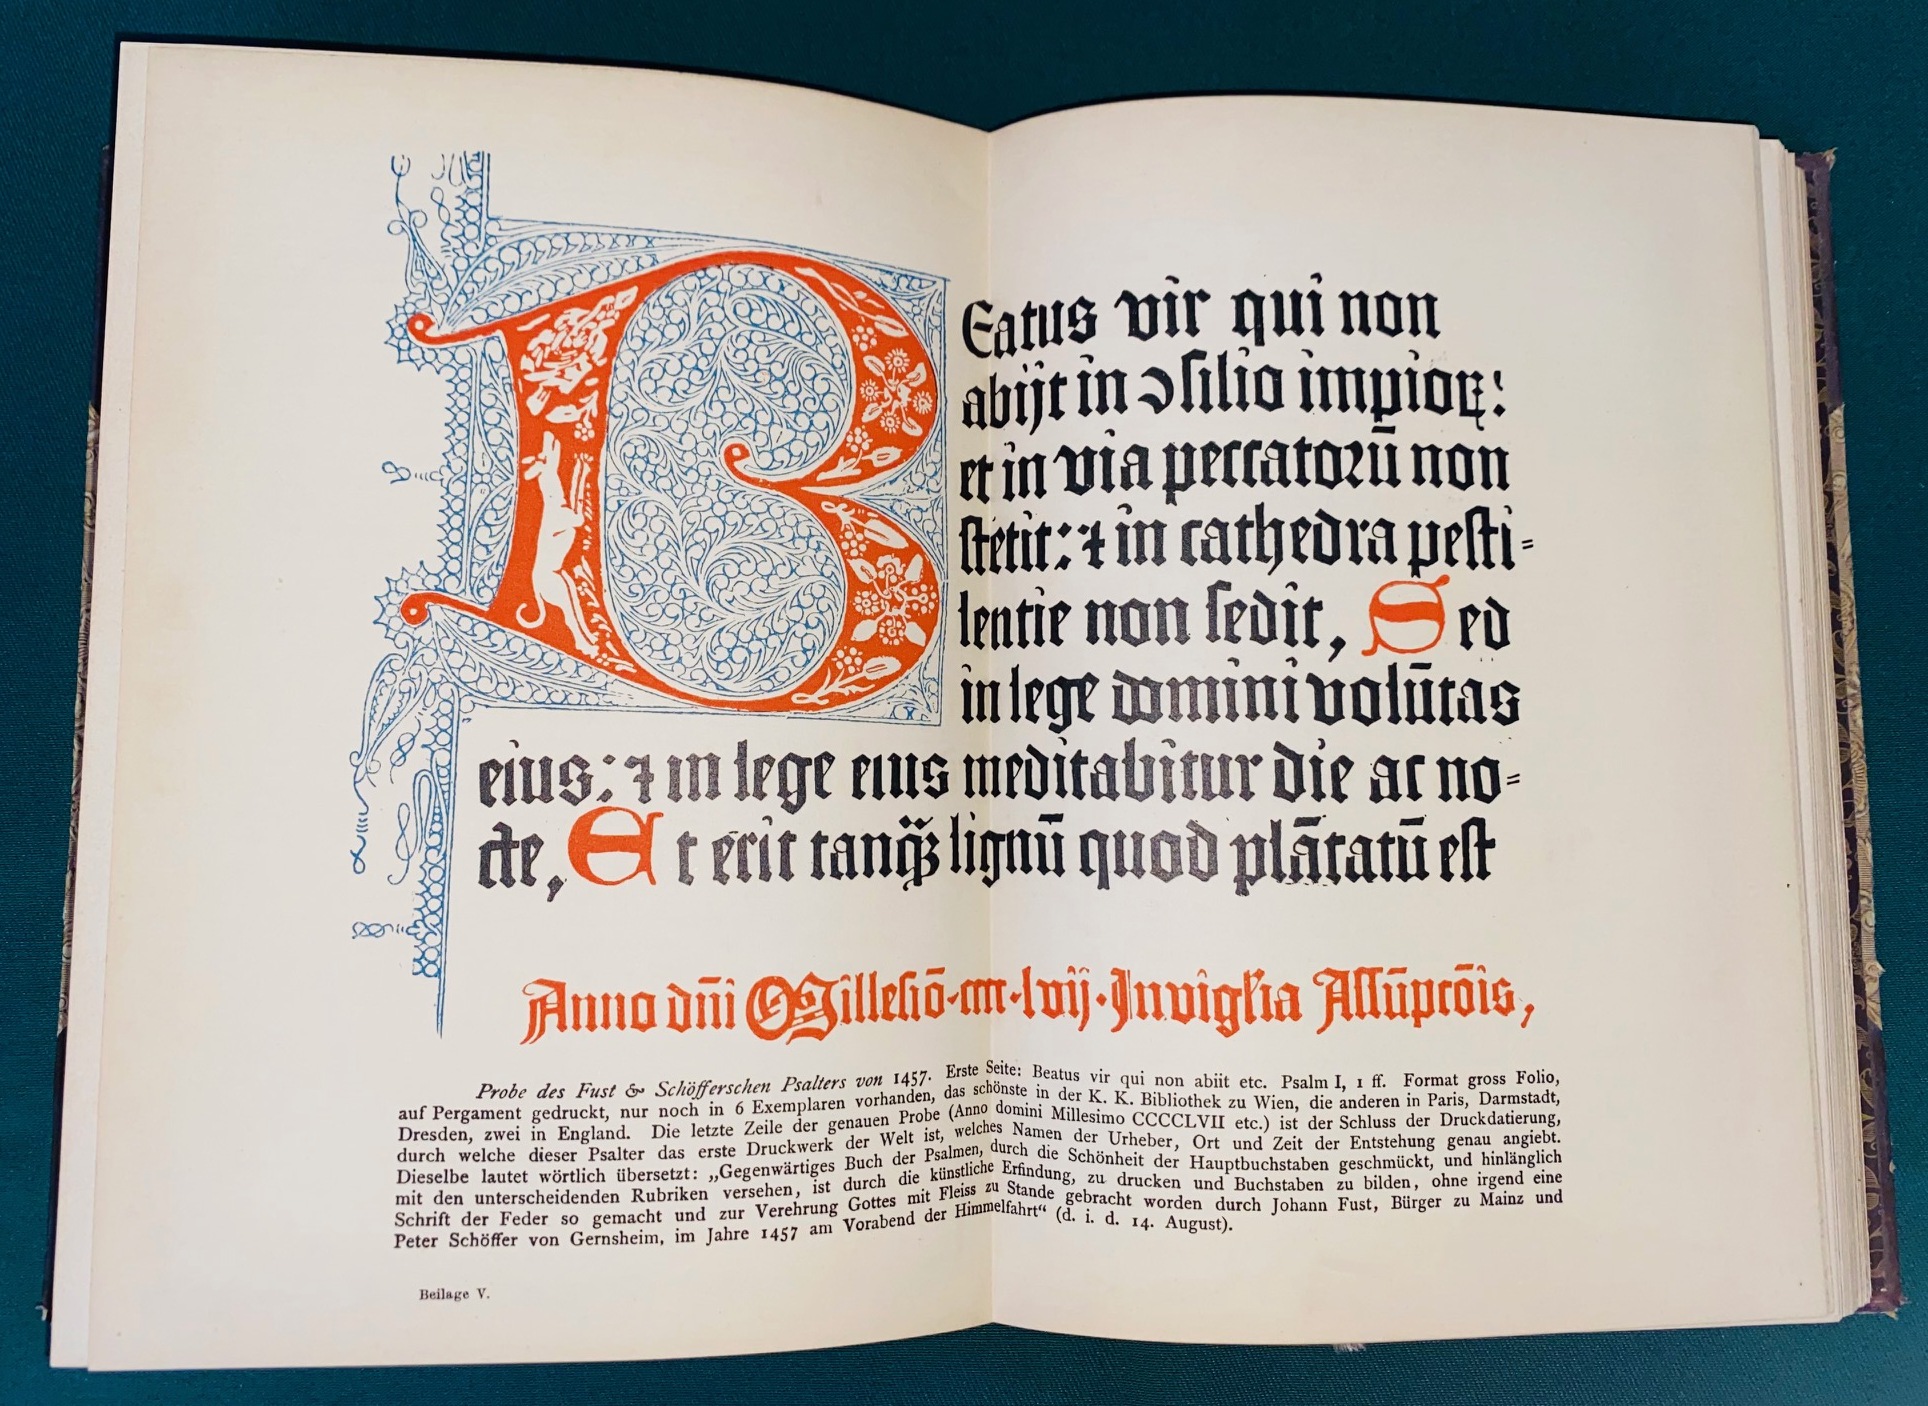 Beatus vir qui non
abijt in ↄſilio impioꝝ:
et in via peccatorū non
ſtetit: ⁊ in cathedra peſti=
lentie non ſedit, Sed
in lege domini volūtas
eius: ⁊ in lege eius meditabitur die ac no=
cte, Et erit tanq̈ꝫ lignū quod plātatū eſt
Anno dn̄i Milleſiō·cccc·lvij·In vigĺia Aſſūpcōis,
Probe des Fust & Schöfferschen Psalters von 1457. Erste Seite: Beatus vir qui non abiit etc. Psalm I, 1 ff. Format gross Folio,
auf Pergament gedruckt, nur noch in 6 Exemplaren vorhanden, das schönste in der K. K. Bibliothek zu Wien, die anderen in Paris, Darmstadt,
Dresden, zwei in England. Die letzte Zeile der genauen Probe (Anno domini Millesimo CCCCLVII etc.) ist der Schluss der Druckdatierung,
durch welche dieser Psalter das erste Druckwerk der Welt ist, welches Namen der Urheber, Ort und Zeit der Entstehung genau angiebt.
Dieselbe lautet wörtlich übersetzt: „Gegenwärtiges Buch der Psalmen, durch die Schönheit der Hauptbuchstaben geschmückt, und hinlänglich
mit den unterscheidenden Rubriken versehen, ist durch die künstliche Erfindung, zu drucken und Buchstaben zu bilden, ohne irgend eine
Schrift der Feder so gemacht und zur Verehrung Gottes mit Fleiss zu Stande gebracht worden durch Johann Fust, Bürger zu Mainz und
Peter Schöffer von Gernsheim, im Jahre 1457 am Vorabend der Himmelfahrt“ (d. i. d. 14. August).
Beilage V.